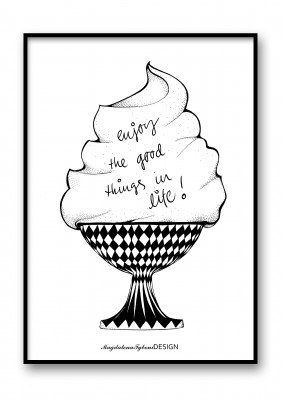 enjoy
the good
things in
life!
Magdalena Tyboni DESIGN